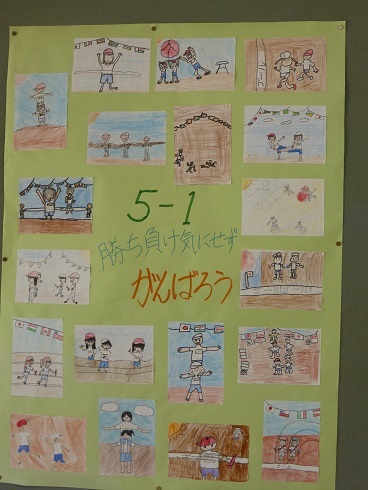 5-1
勝ち負け気にせず
がんばろう